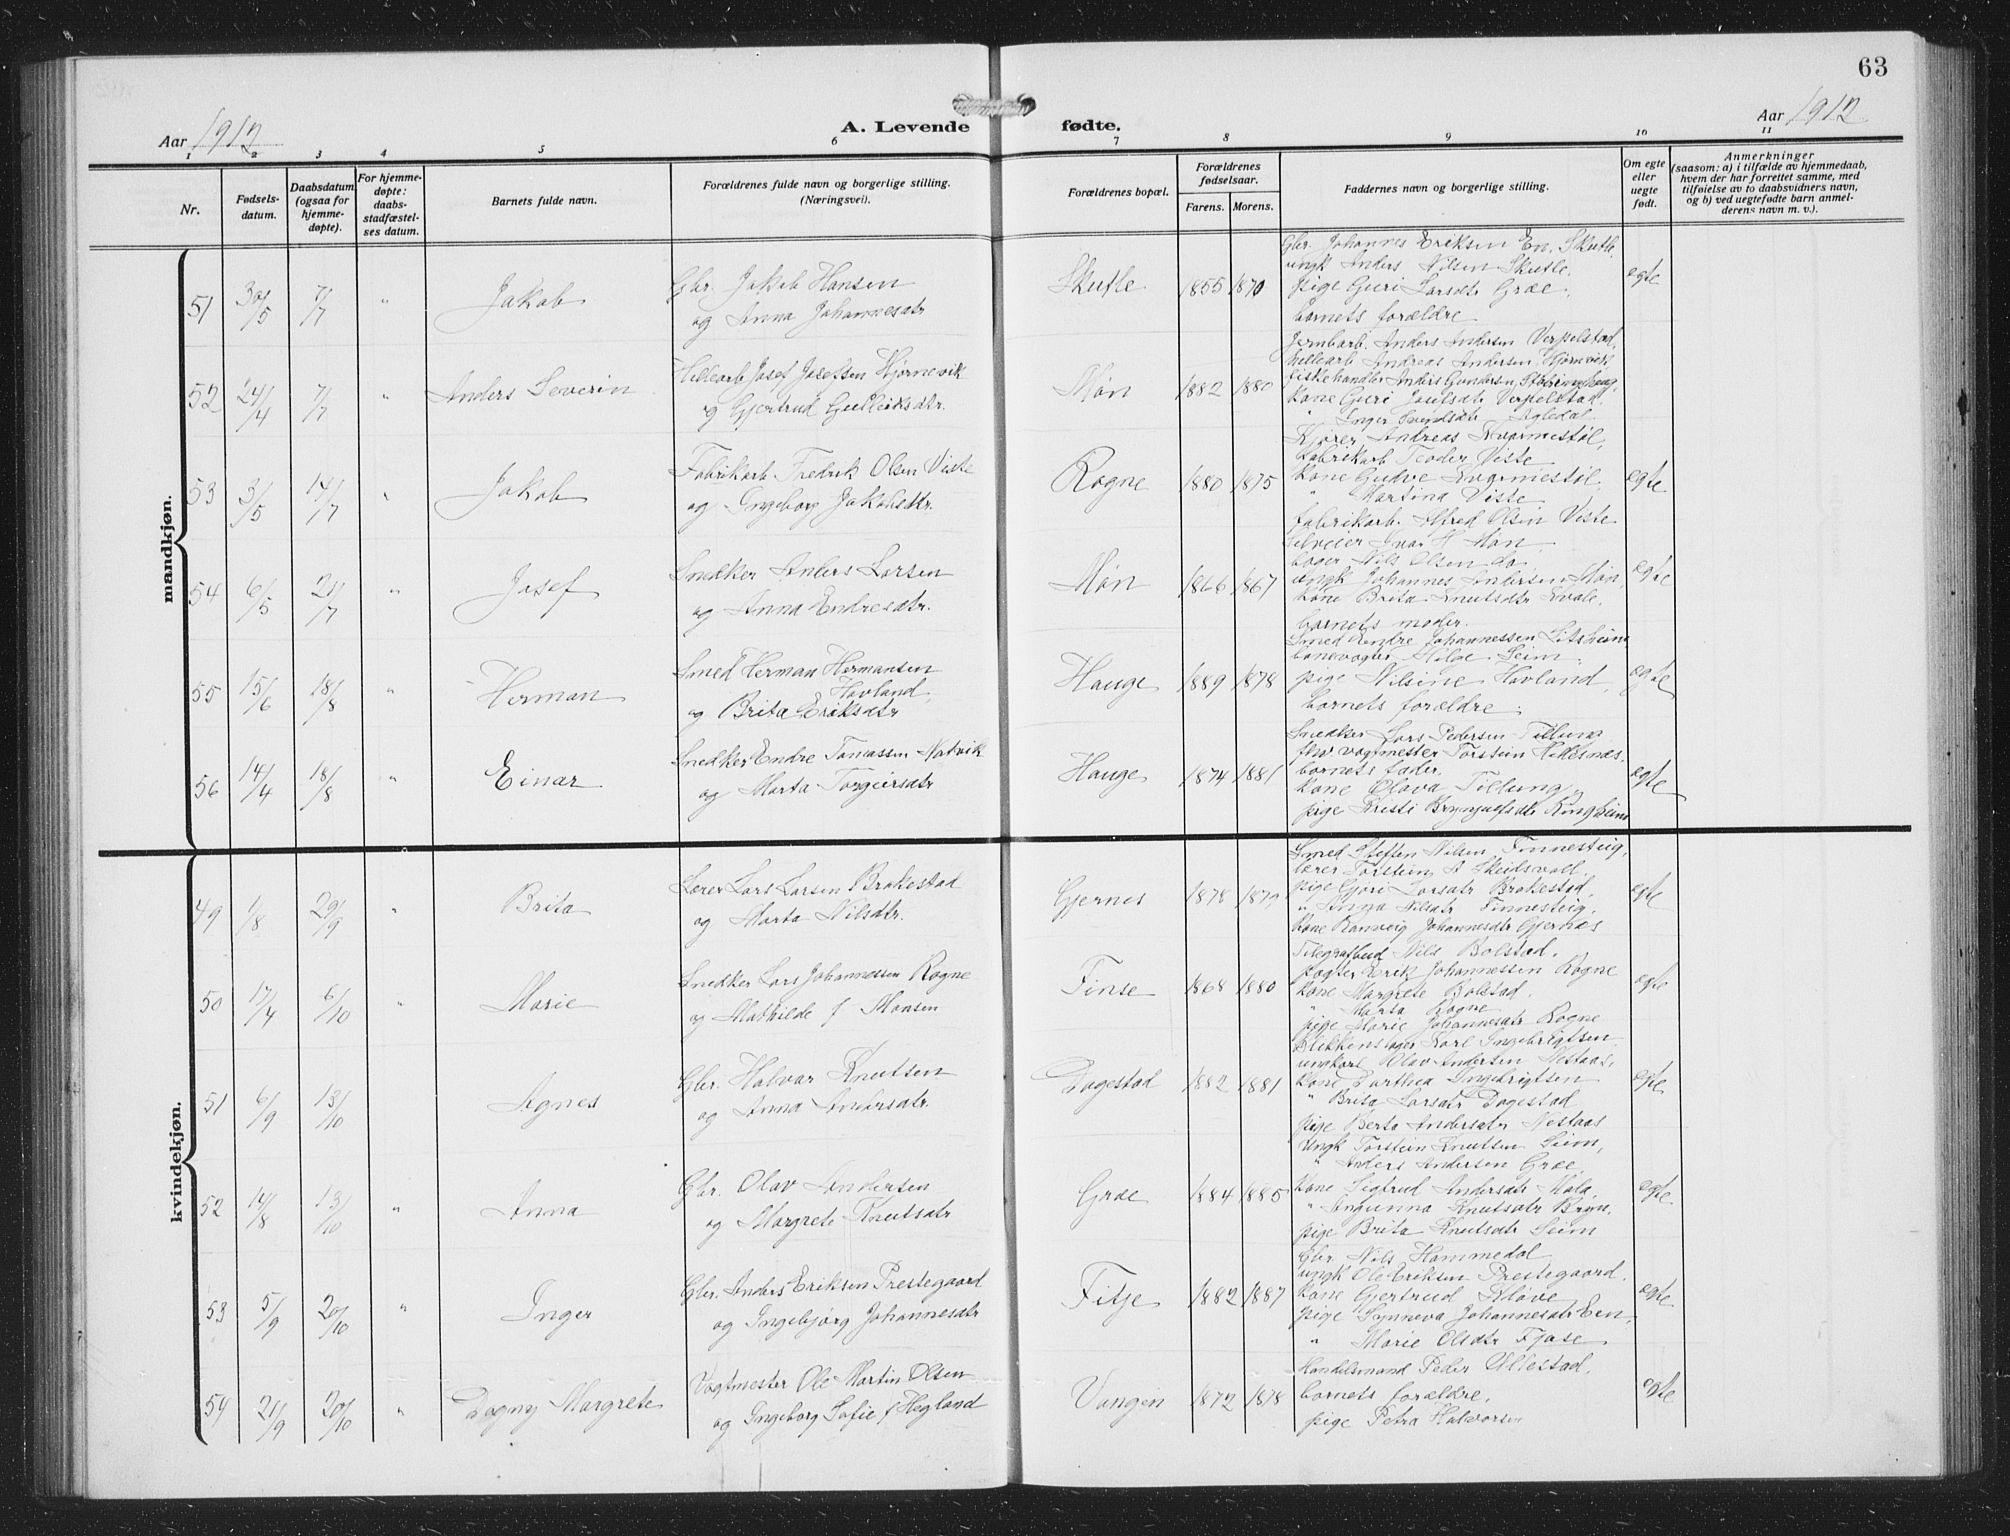 63
Aar 1912
A. Levende fødte.
Aar 1912
1 2 3 4 5 6 7 8 9 10 11
Nr.
Fødsels-
datum.
Daabsdatum
(ogsaa for
hjemme-
døpte).
For hjemme-
døpte:
daabs-
stadfæstel-
ses datum.
Barnets fulde navn.
Forældrenes fulde navn og borgerlige stilling.
(Næringsvei).
Forældrenes bopæl.
Forældrenes
fødselsaar.
Farens. Morens.
Faddernes navn og borgerlige stilling.
Om egte
eller
uegte
født.
Anmerkninger
(saasom: a) i tilfælde av hjemmedaab,
hvem der har forrettet samme, med
tilføielse av to daabsvidners navn,
og b) ved uegtefødte barn anmel-
derens navn m. v.).
mandkjøn.
51 30/5 7/7 " Jakob
Gbr. Jakob Hansen
og Anna Johannesdtr
Skutle 1855 1870
Gbr. Johannes Eriksen En. Skutle,
ungk Anders Nilsen Skutle.
pige Guri Larsdtr Græe,
barnets forældre
egte
52 24/4 7/7 " Anders Severin
Hellearb Josef Josefsen Hjørnevik
og Gjertrud Gulleiksdtr.
Møn 1882 1880
Jernbarb. Anders Andersen Verpelstad,
hellearb Andreas Andersen Hjørnevik
fiskehandler Anders Gundersen
kone Guri Josefsdtr Verpelstad
" Inger
53 3/5 14/7 " Jakob
Fabrikarb Fredrik Olsen Viste
og Ingeborg Jakobsdtr.
Rogne 1880 1875
Kjører Andreas Kvarmestøl,
fabrikarb Teodor Viste
kone Gudve Kvarmestøl
" Martina Viste
fabrikarb. Alfred Olsen Viste
egte
54 6/5 21/7 " Josef
Snedker Anders Larsen
og Anna Endresdtr.
Møn 1866 1867
Selveier Ivar H Møn
Nils Olsen do
ungk Johannes Andersen Møn,
kone Brita Knutsdtr Kvale,
barnets moder.
egte
55 15/6 18/8 " Herman
Smed Herman Hermansen
Havland,
og Brita Eriksdtr
Hauge 1889 1878
Smed Endre Johannessen Sitsheim
banevogter Hilge Seim,
pige Nilsine Havland,
barnets forældre.
egte
56 14/4 18/8 " Einar
Snedker Endre Tomassen Natvik
og Marta Torgeirsdtr
Hauge 1874 1881
Snedker Lars Pedersen Tillung
fhv vogtmester Torstein Hellesnæs,
barnets fader.
kone Olava Tillung,
pige Kristi Brynjulfsdtr Ringheim
egte
kvindekjøn.
49 1/8 29/9 " Brita
Lærer Lars Larsen Brakestad
og Marta Nilsdtr.
Gjernes 1878 1879
Smed Steffen Nilsen Finnesteig,
lærer Torstein A Skeidsvoll.
pige Gjøri Larsdtr Brakestad,
" Anna Nilsdtr Finnesteig,
kone Ranveig Johannesdtr Gjernæs
egte
50 17/4 6/10 " Marie
Snedker Lars Johannessen Rogne
og Mathilde f Monsen
Finse 1868 1880
Telegrafbud Nils Bolstad.
Erik Johannessen Rogne
kone Margrete Bolstad.
" Marta Rogne
pige Marie Johannesdtr Rogne
egte
51 6/9 13/10 " Agnes
Gbr. Halvar Knutsen
og Anna Andersdtr.
Dagestad 1882 1881
Blikkenslager Karl Ingebrigtsen
ungkarl Olav Andersen Nestaas,
kone Dorthea Ingebrigtsen
" Brita Larsdtr Dagestad
pige Berta Andersdtr Nestaas
egte
52 14/8 13/10 " Anna
Gbr. Olav Andersen
og Margrete Knutsdtr
Græe 1884 1885
Ungk Torstein Knutsen Seim,
" Anders Andersen Græe,
kone Sigtrud Andersdtr Mala,
" Angunna Knutsdtr Bryn,
pige Brita Knutsdtr Seim
egte
53 5/9 20/10 " Inger
Gbr. Anders Eriksen Prestegaard
og Ingebjørg Johannesdtr
Fitje 1882 1887
Gbr Nils Hommedal
ungk Ole Eriksen Prestegaard.
kone Gjertrud Kløve,
pige Synneva Johannesdtr Een,
" Marie Olsdtr Fjose
egte
54 21/9 20/10 " Dagny Margrete
Vogtmester Ole Martin Olsen
og Ingeborg Sofie f Hegland
Vangen 1872 1878
Handelsmand Peder Ullestad,
barnets forældre,
pige Petra Halvorsen
egte